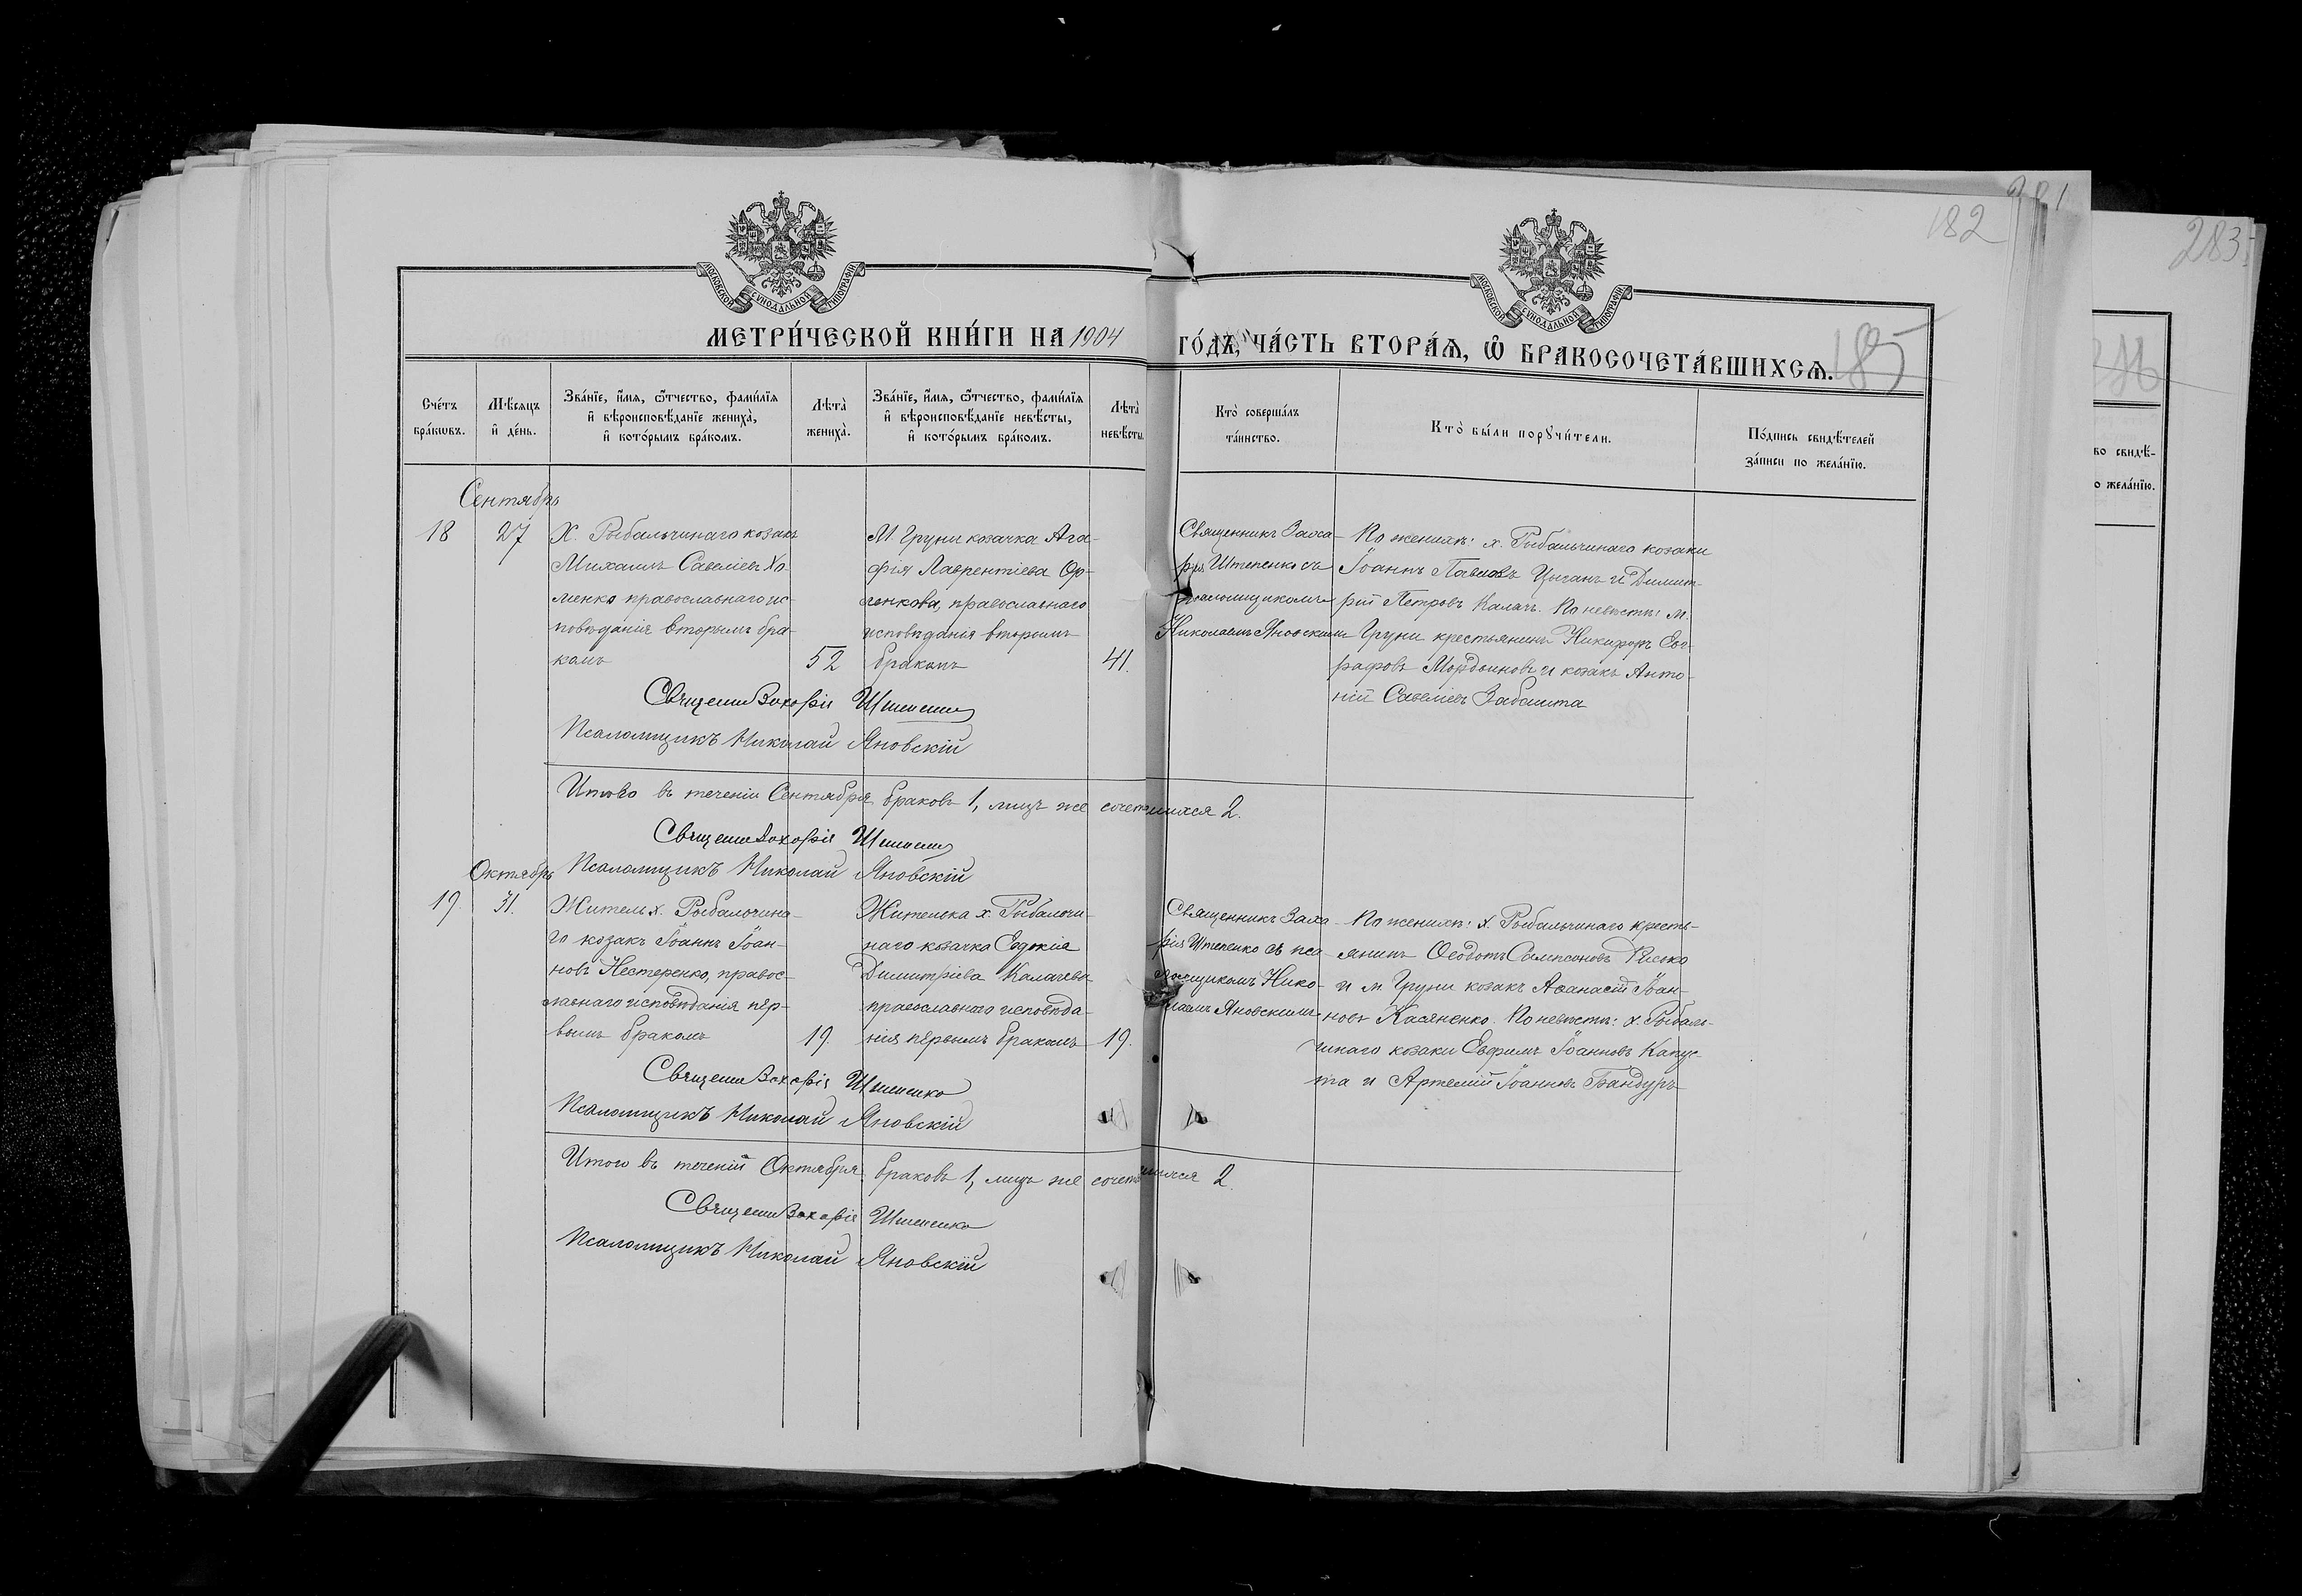 МОСКОВСКОЙ СѴНОДАЛЬНОЙ ТИПОГРАФІИ
МОСКОВСКОЙ СѴНОДАЛЬНОЙ ТИПОГРАФІИ
182
281
283
185
МЕТРИ́ЧЕСКОЙ КНИ́ГИ НА 1904 ГО́ДЪ, ЧА́СТЬ ВТОРА́Ѧ, Ѡ҆ БРАКОСОЧЕТА́ВШИХСѦ.
Сче́тъ
бра́кѡвъ.
Мѣ́сѧцъ
и҆ де́нь.
Зва́нїе, и҆́мѧ, ѻ҆́тчество, фами́лїѧ
и҆ вѣроисповѣ́данїе жениха̀,
и҆ кото́рымъ бра́комъ.
Лѣта̀
жениха̀.
Зва́нїе, и҆́мѧ, ѻ҆́тчество, фами́лїѧ
и҆ вѣроисповѣ́данїе невѣ́сты,
и҆ кото́рымъ бра́комъ.
Лѣта̀
невѣ́сты.
Кто̀ соверша́лъ
та́инство.
Кто̀ бы́ли порꙋчи́тели.
По́дпись свидѣ́телей
за́писи по жела́нїю.
Сентябрь
18
27
Х. Рыбальчинаго козакъ
Михаилъ Савеліевъ Хо-
менко православнаго ис-
повѣданія вторымъ бра-
комъ
52
М. Груни козачка Ага-
фія Лаврентіева Ор-
ленкова, православнаго
исповѣданія вторымъ
бракомъ
41.
Священникъ Заха-
рія Штепенко съ
псаломщикомъ
Николаемъ Яновскимъ
По женихѣ: х. Рыбальчинаго козаки
Іоаннъ Павловъ Цыганъ и Димит-
рій Петровъ Калачъ. По невѣстѣ: м.
Груни крестьянинъ Никифоръ Евг-
рафовъ Мордвиновъ и козакъ Анто-
ній Савеліевъ Забашта
Священ Захарія Штепенко
Псаломщикъ Николай Яновскій
Итого въ теченіи Сентября браковъ 1, лицъ же сочетавшихся 2.
Священ Захарія Штепенко
Псаломщикъ Николай Яновскій
Октябрь
19.
31.
Житель х. Рыбальчина-
го козакъ Іоаннъ Іоан-
новъ Нестеренко, правос-
лавнаго исповѣданія пер-
вымъ бракомъ
19.
Жителька х. Рыбальчи-
наго козачка Евдокія
Димитріева Калачева
православнаго исповѣда-
нія первымъ бракомъ
19.
Священникъ Заха-
рія Штепенко съ пса-
ломщикомъ Нико-
лаемъ Яновскимъ
По женихѣ: х. Рыбальчинаго кресть-
янинъ Ѳеодотъ Сампсоновъ
и м. Груни козакъ Аѳанасій Іоан-
новъ Касяненко. По невѣстѣ: х. Рыбаль-
чинаго козаки Евфимъ Іоанновъ Капус-
та и Артемій Іоанновъ Бандуръ
Священ Захарія Штепенко
Псаломщикъ Николай Яновскій
Итого въ теченіи Октября браковъ 1, лицъ же сочетавшихся 2.
Священ Захарія Штепенко
Псаломщикъ Николай Яновскій
во свидѣ́-
о жела́нїю.